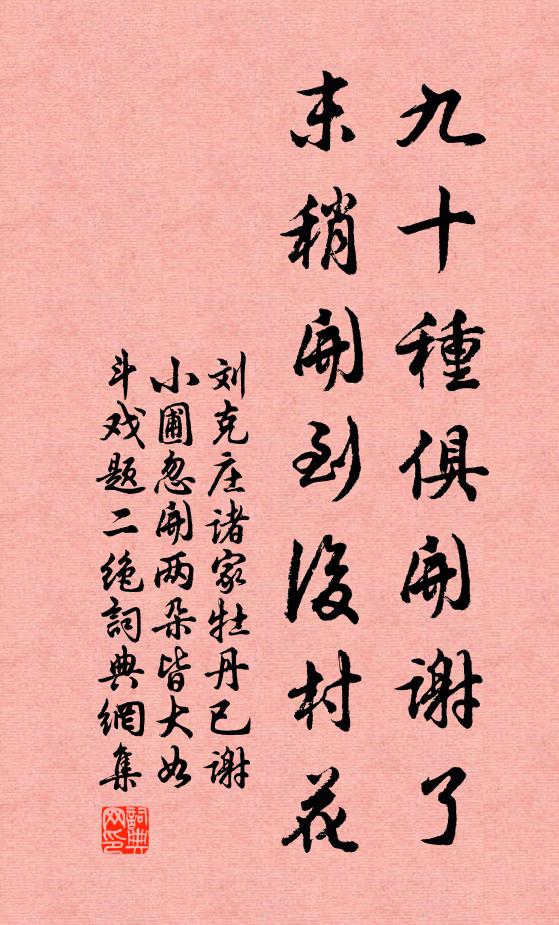 九十種俱開謝了
末稍開到後村花
刘克庄诸家牡丹已谢
小圃忽開两朵皆大如
斗戏题二绝詞典網集
詞典网印